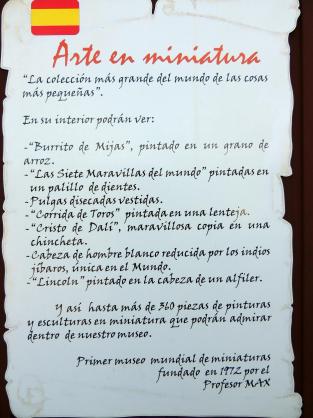 Arte en miniatura
"La colección más grande del mundo de las cosas
más pequeñas".
En su interior podrán ver:
-"Burrito de Mijas", pintado en un grano de
arroz.
-"Las Siete Maravillas del mundo" pintadas en
un palillo de dientes.
-Pulgas disecadas vestidas.
-"Corrida de Toros" pintada en una lenteja.
-"Cristo de Dalí", maravillosa copia en una
chincheta.
-Cabeza de hombre blanco reducida por los indios
jíbaros, única en el Mundo.
-"Lincoln" pintado en la cabeza de un alfiler.
Y así hasta más de 360 piezas de pinturas
y esculturas en miniatura que podrán admirar
dentro de nuestro museo.
Primer museo mundial de miniaturas
fundado en 1972 por el
Profesor MAX